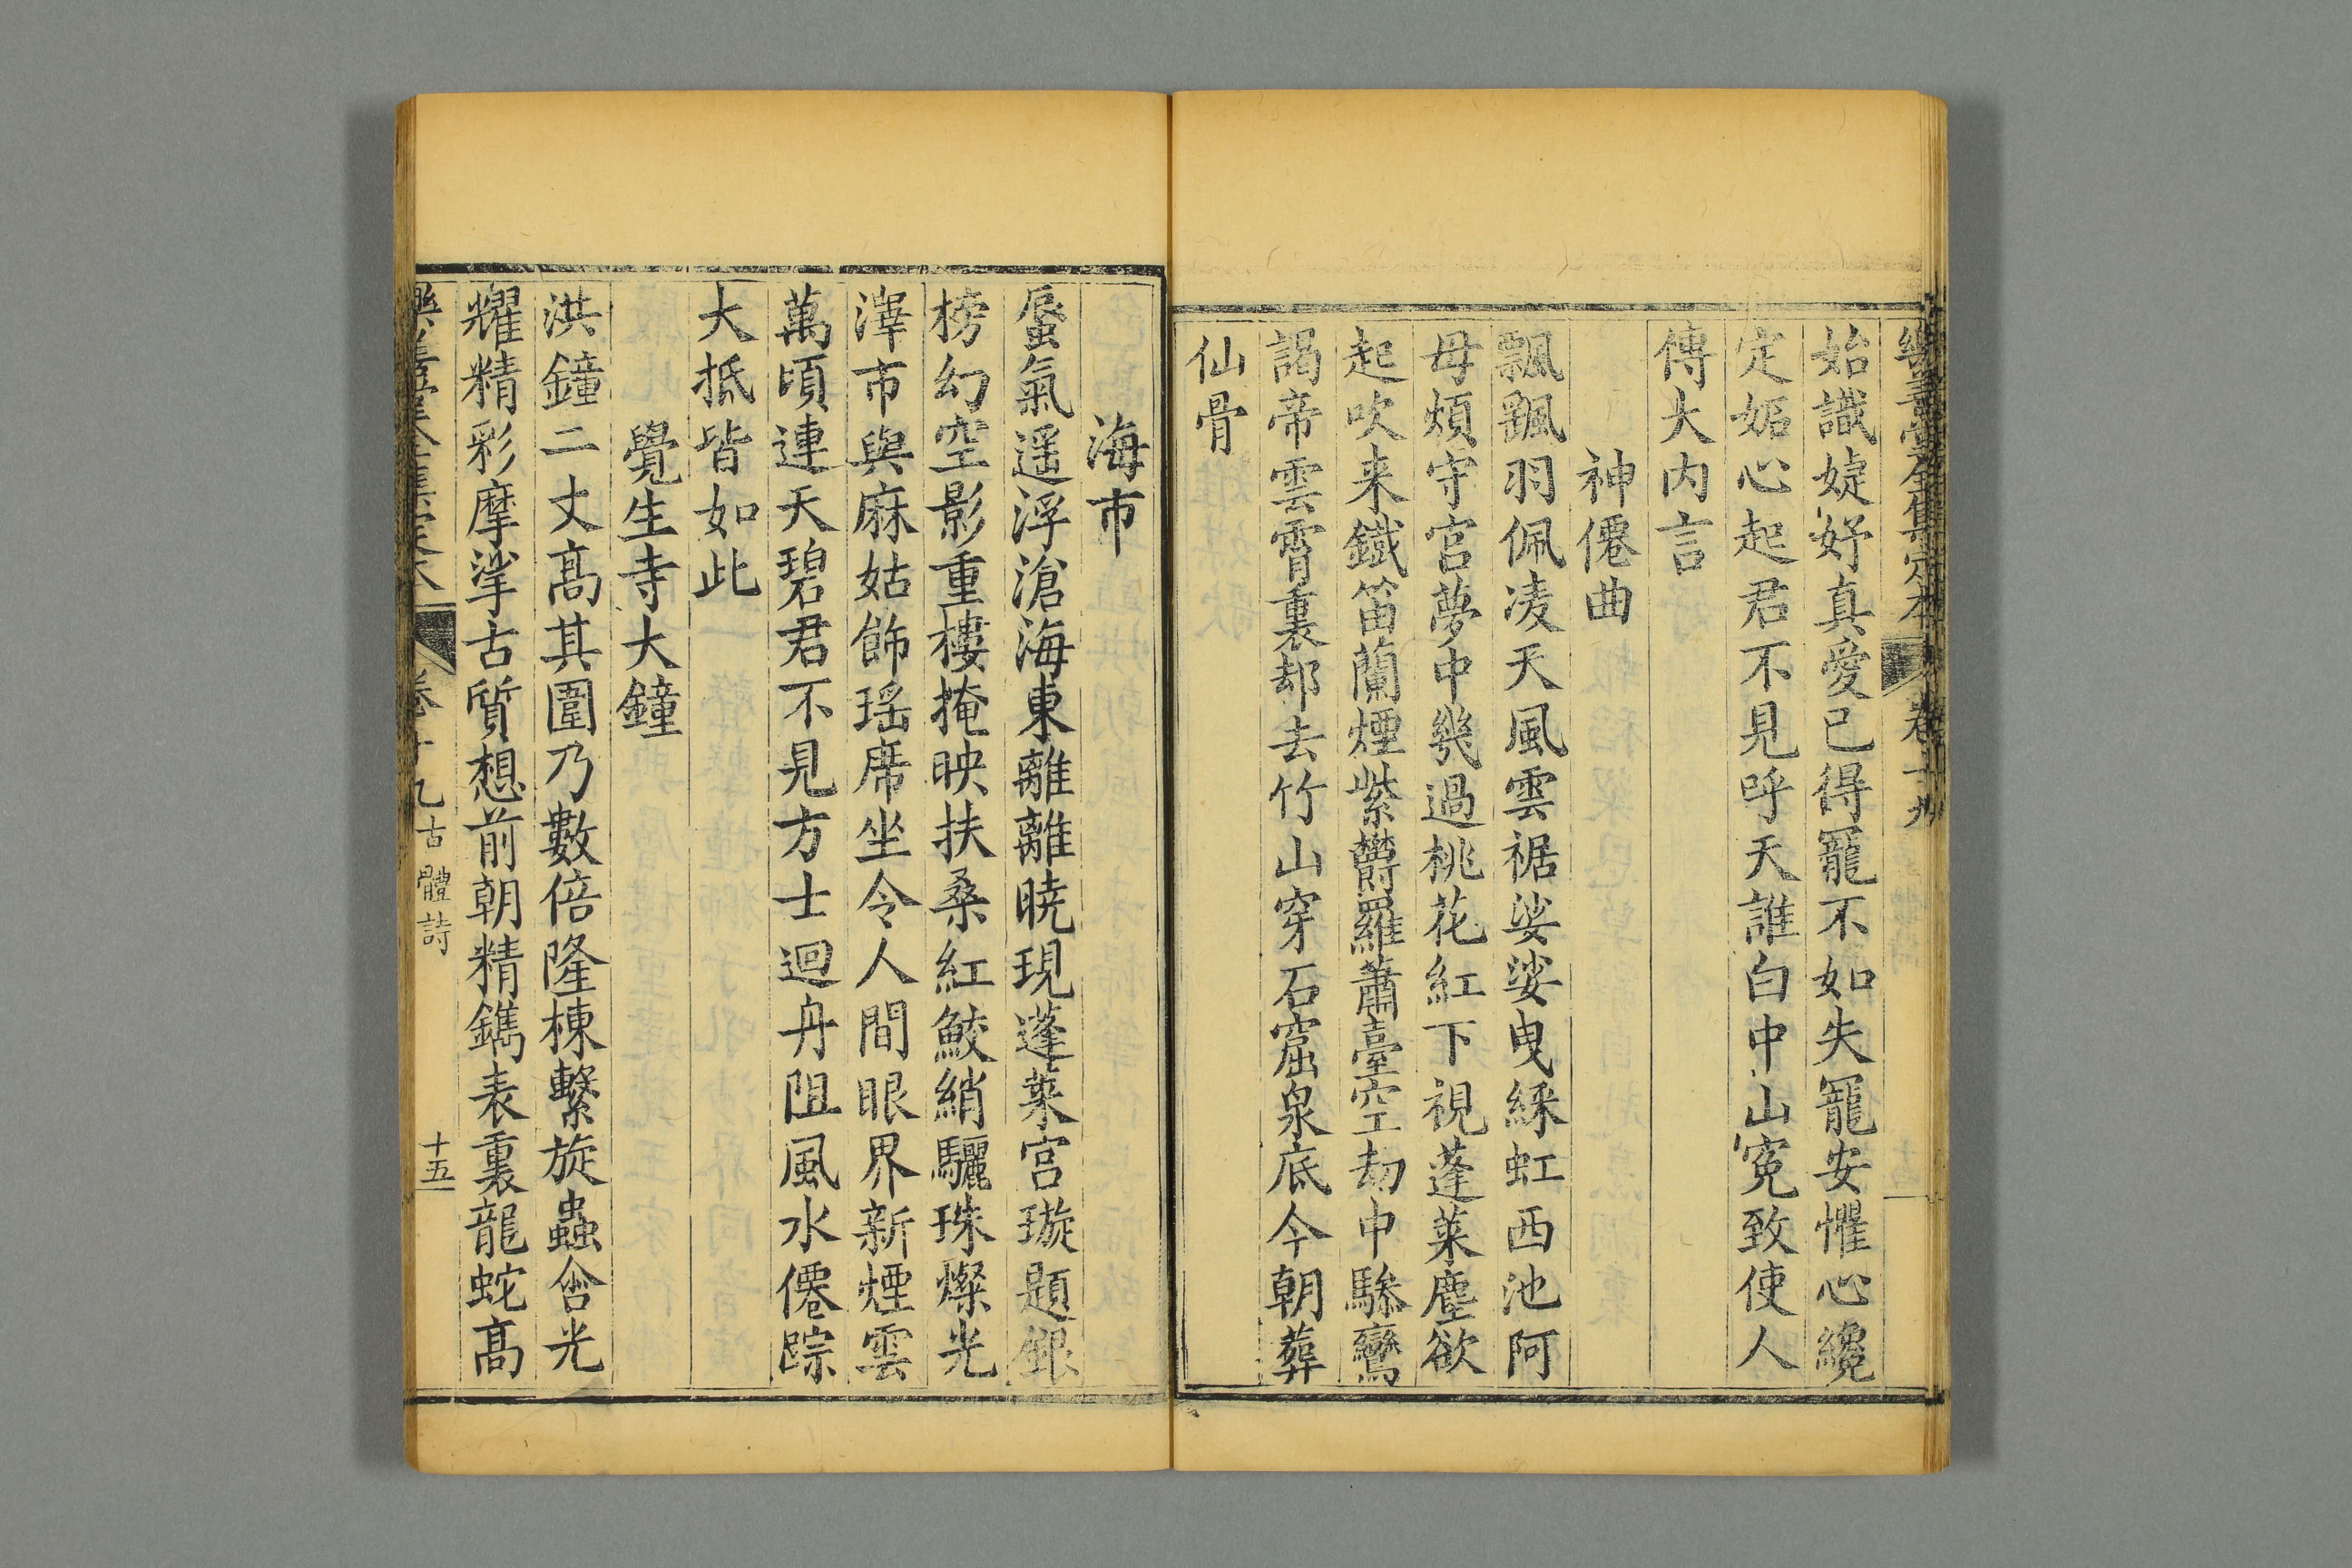 樂善堂全集定本 卷十九
始識婕妤真愛已得寵不如失寵安懼心纔
定妬心起君不見呼天誰白中山寃致使人
傳大内言
神僊曲
飄飄羽佩凌天風雲裾娑娑曳綵虹西池阿
母頻守宫夢中幾過桃花紅下視蓬萊塵欲
起吹来鐵笛蘭煙紫欝羅蕭臺空劫中驂鸞
謁帝雲霄裏却去竹山穿石窟泉底今朝葬
仙骨
海市
蜃氣遥浮滄海東離離曉現蓬萊宫璇題銀
榜幻空影重樓掩映扶桑紅鮫綃驪珠燦光
澤市與麻姑飾瑶席坐令人間眼界新煙雲
萬頃連天碧君不見方士迴舟阻風水僊踪
大抵皆如此
覺生寺大鐘
洪鐘二丈髙其圍乃數倍隆棟繫旋蟲含光
耀精彩摩挲古質想前朝精鐫表裏龍蛇髙
樂善堂全集定本 卷十九 古體詩 十五